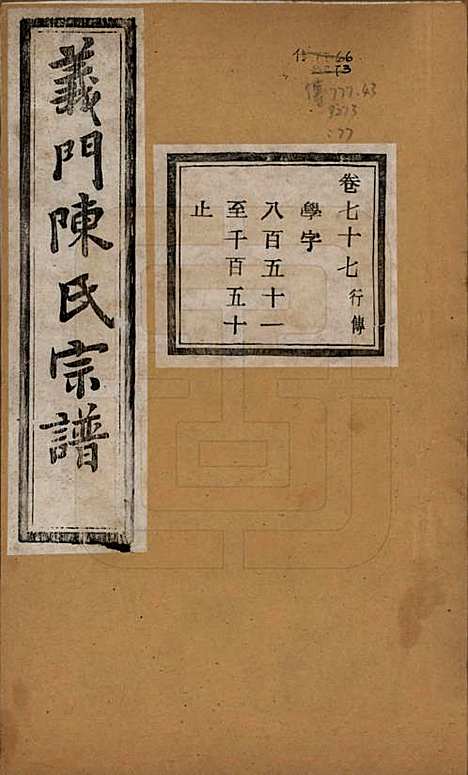 義門陳氏宗譜
卷七十七 行傳
學字
八百五十一
至千百五十
止
傳777.43
9273
:77